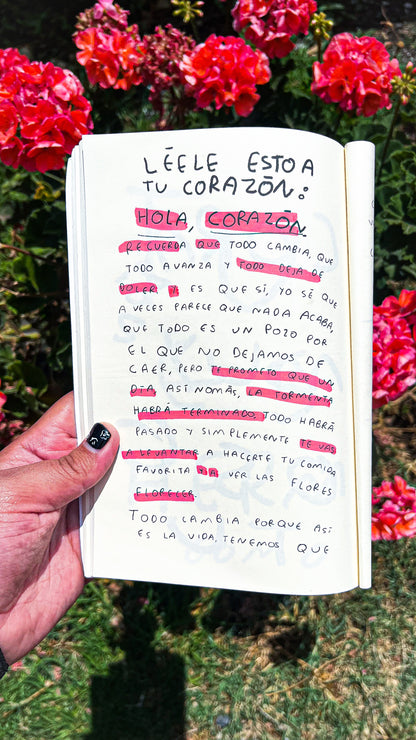 LÉELE ESTO A
TU CORAZÓN:
HOLA, CORAZÓN.
RECUERDA QUE TODO CAMBIA, QUE
TODO AVANZA Y TODO DEJA DE
DOLER. Y ES QUE SÍ, YO SÉ QUE
A VECES PARECE QUE NADA ACABA,
QUE TODO ES UN POZO POR
EL QUE NO DEJAMOS DE
CAER, PERO TE PROMETO QUE UN
DÍA, ASÍ NOMÁS, LA TORMENTA
HABRÁ TERMINADO, TODO HABRÁ
PASADO Y SIMPLEMENTE TE VAS
A LEVANTAR A HACERTE TU COMIDA
FAVORITA Y A VER LAS FLORES
FLORECER.
TODO CAMBIA PORQUE ASÍ
ES LA VIDA. TENEMOS QUE